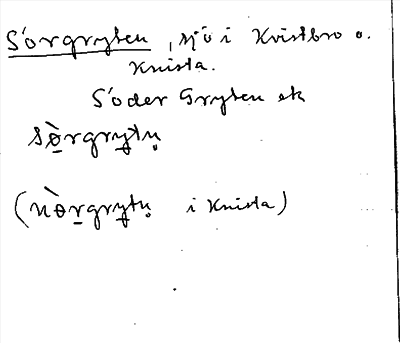 Sörgryten, sjö i Kvistbro o.
Knista.
Söder Gryten ek
sə̀rgrytn̥
(nə̀rgrytn̥ i Knista)